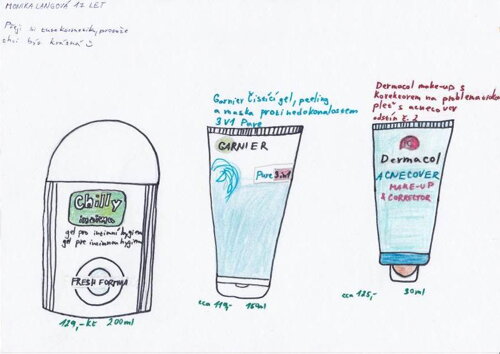 MONIKA LANGOVÁ 12 LET
Přeji si tuto kosmetiku, protože
chci být krásná
Garnier Čistící gel, peeling
a maska proti nedokonalostem
3 V 1 Pure
Dermacol make-up s
korektorem na problematickou
pleť s acnecover
odstín č. 2
Chilly
intima
gel pro intimní hygienu
gél pre intímnu hygienu
FRESH FORMULA
129,- Kč 200ml
GARNIER
Pure 3 in 1
cca 119,- 150ml
Dermacol
ACNECOVER
MAKE-UP
& CORRECTOR
cca 125,- 30ml